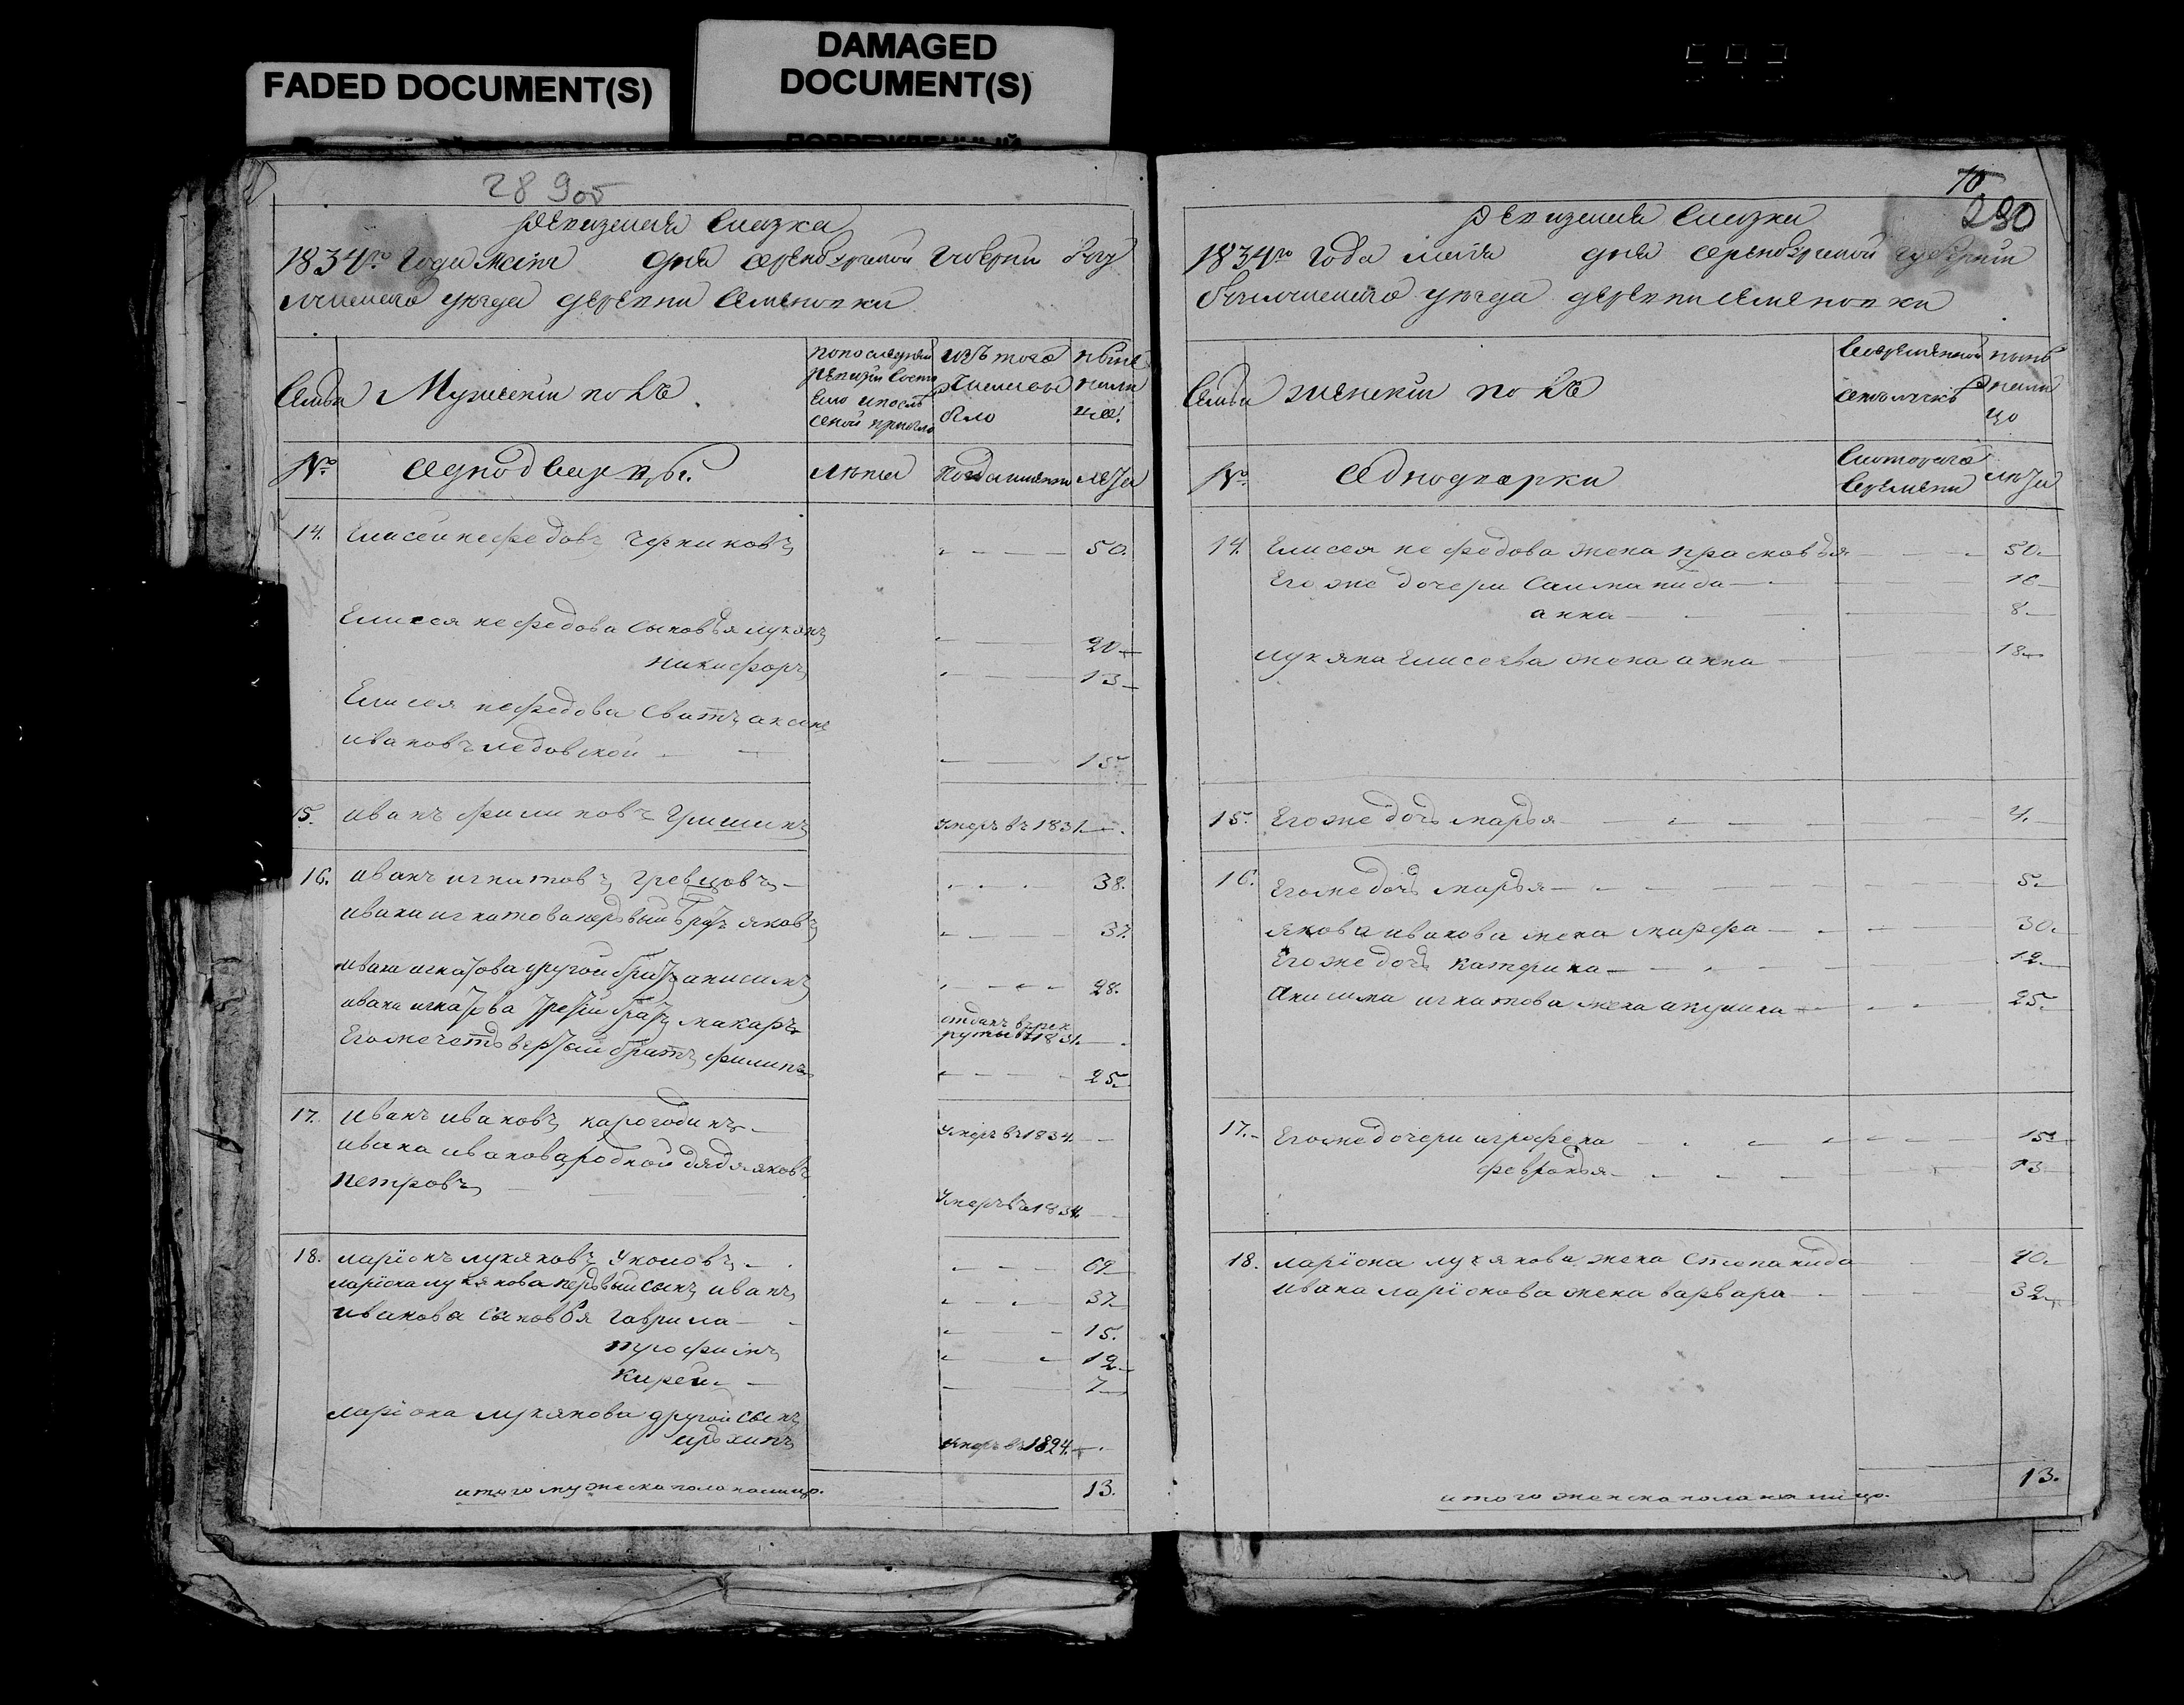 FADED DOCUMENT(S)
DAMAGED
DOCUMENT(S)
ПОВРЕЖДЕННЫЙ
28 9об
Ревизская Сказка
1834го года маия дня оренбургской губернии Бугу
льминского уезда деревни Семеновки
Семьи Мужеский полъ
По последней ревизии состояло и после оной прибыло
Изъ того числа выбыло
Ныне на лицо
№ Однодворцы.
лета
Когда именно
лета
14. Елисей нефедовъ черниковъ 50.
Елисея нефедова сыновья лукянъ 20
никифоръ 13
Елисея нефедова сватъ аксенъ
ивановъ ледовской 15
15. иванъ филиповъ гришинъ умеръ въ 1831
16. иванъ игнатовъ гревцовъ 38.
ивана игнатова первый братъ яковъ 37.
ивана игнатова другой братъ анисимъ 28.
ивана игнатова третей братъ макаръ отданъ въ рек
руты въ 1831.
Его же четвертый братъ филипъ 25.
17. иванъ ивановъ карогодинъ умеръ въ 1834
ивана иванова родной дядя яковъ
петровъ умеръ въ 1834.
18. ларiонъ лукяновъ уколовъ 69
ларiона лукянова первый сынъ иванъ 37
иванова сыновья гаврила 15.
трофимъ 12
кирей 7
ларiона лукянова другой сынъ
архипъ умеръ въ 1824.
итого мужеска пола налицо. 13.
10
280
Ревизская Сказка
1834го года маия дня оренбургской губернии
Бугульминского уезда деревни семеновки
Семьи женский полъ
Во временной отлучке
Ныне на лицо
№ Однодворки
С которого времени
лета
14. Елисея нефедова жена прасковья 50
Его же дочери Саломанида 16
анна 8
лукяна Елисеева жена анна 18
15. Его же дочь марья 4.
16. Его же дочь марья 5
якова иванова жена марфа 30.
Его же дочь катерина 12
анисима игнатова жена акулина 25
17. Его же дочери аграфена 15
февронья 13
18. ларiона лукянова жена степанида 70.
ивана ларiонова жена варвара 32
итого женска пола налицо. 13.